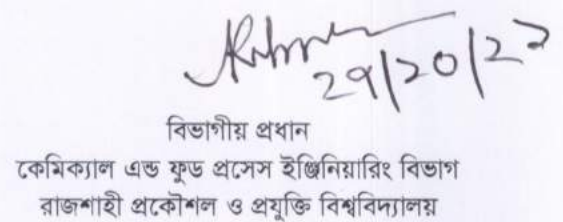 বিভাগীয় প্রধান
কেমিক্যাল এন্ড ফুড প্রসেস ইঞ্জিনিয়ারিং বিভাগ
রাজশাহী প্রকৌশল ও প্রযুক্তি বিশ্ববিদ্যালয়